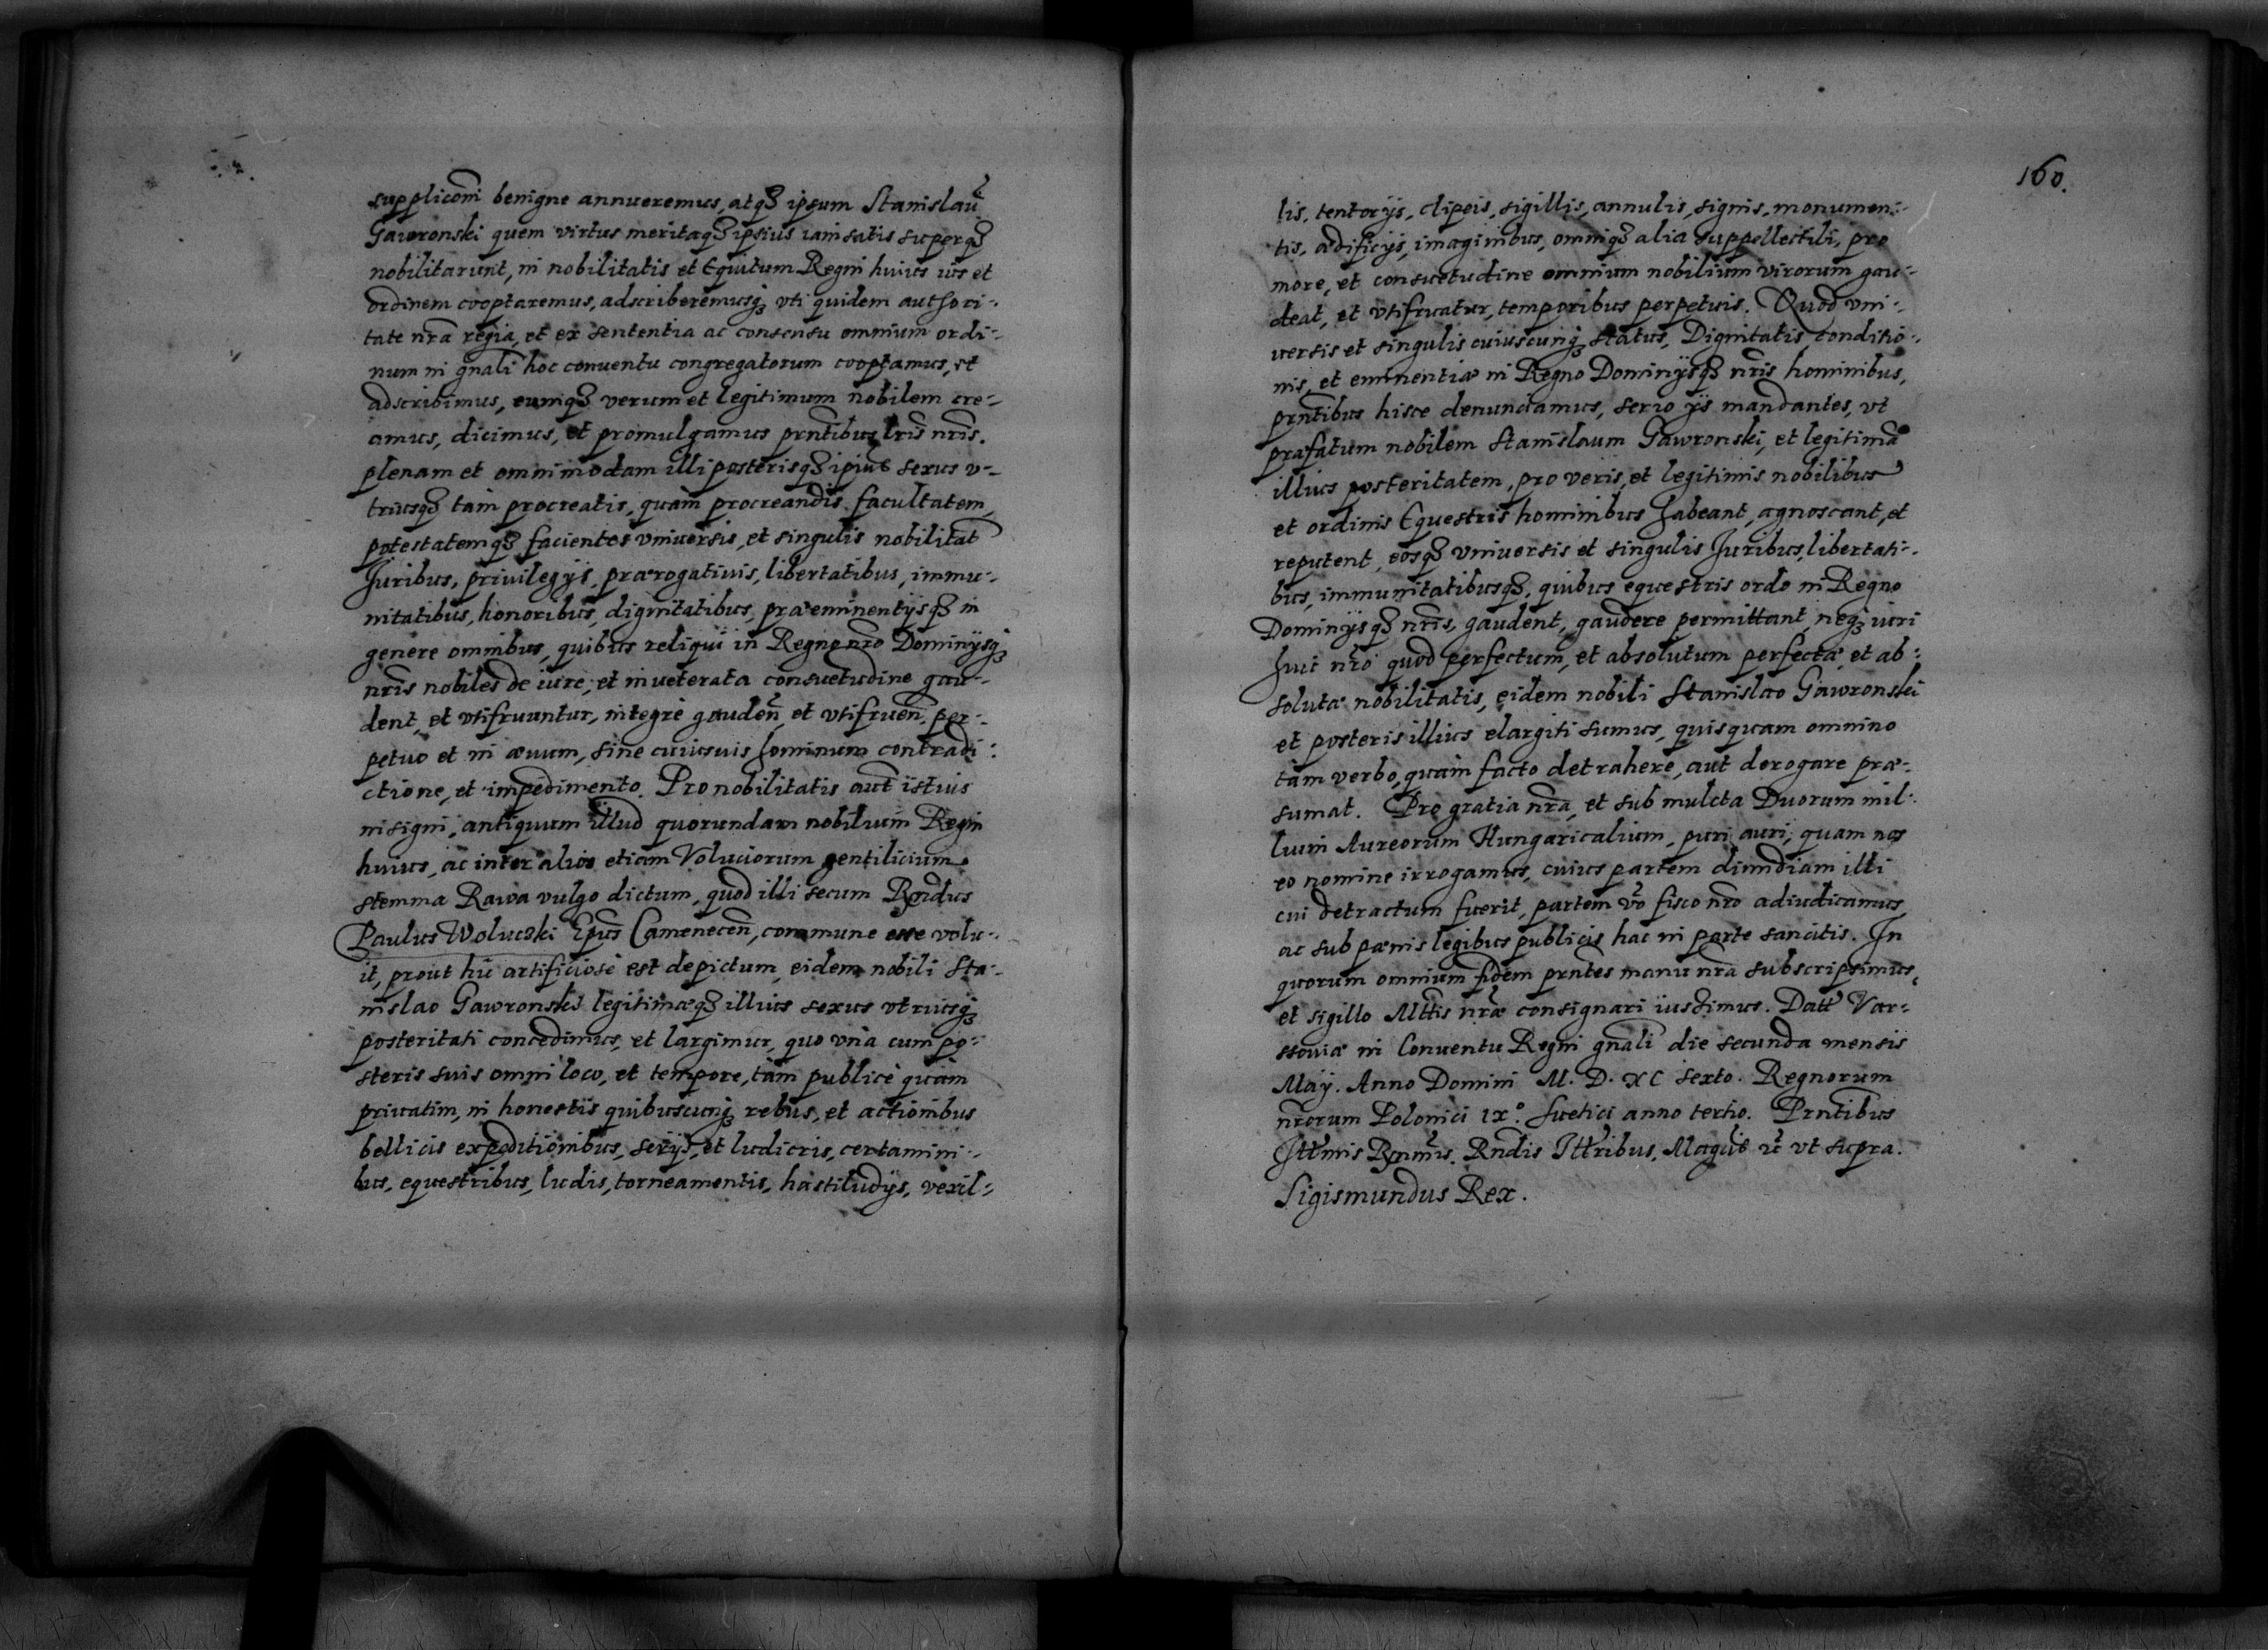 supplicoñi benigne annueremus, atq₃ ipsum Stanislaũ
Gawronski quem virtus meritaq₃ ipsius iam satis superq₃
nobilitarunt, in nobilitatis et Equitum Regni huius ius et
ordinem cooptaremus, adscriberemusq₃ vti quidem authori-
tate nr̃a regia, et ex sententia ac consensu omnium ordi-
num in gñali hoc conuentu congregatorum cooptamus, et
adscribimus, eumq₃ verum et legitimum nobilem cre-
amus, dicimus, et promulgamus prñtibus lr̃is nr̃is.
plenam et omnimodam illi posterisq₃ ipiũs sexus v-
triusq₃ tàm procreatis, quàm procreandis facultatem,
potestatemq₃ facientes vniuersis, et singulis nobilitat̃
Juribus, priuilegijs, prærogatiuis, libertatibus, immu-
nitatibus, honoribus, dignitatibus, præeminentijsq₃ in
genere omnibus, quibus reliqui in Regno nr̃o Dominijsq₃
nr̃is nobiles de iure, et inueterata consuetudine gau-
dent, et vtifruuntur, integrè gauden̄, et vtifruen̄, per-
petuo et in æuum, sine cuiusuis hominum contradi-
ctione, et impedimento. Pro nobilitatis aut̃ istius
insigni, antiquum illud quorundam nobilium Regni
huius, ac inter alios etiam Voluciorum gentilicium
stemma Rawa vulgo dictum, quod illi secum Rñdus
Paulus Wolucski Ep̃us Camenecen̄, commune esse volu-
it, prout hic artificiosè est depictum, eidem nobili Sta-
nislao Gawronski legitimæq₃ illius sexus vtriusq₃
posteritati concedimus, et largimur, quo vnà cum po-
steris suis omni loco, et tempore, tàm publicè quàm
priuatim, in honestis quibuscunq₃ rebus, et actionibus
bellicis expeditionibus, serijs, et ludicris, certamini-
bus, equestribus, ludis, torneamentis, hastiludijs, vexil-
160.
lis, tentorijs, clipeis, sigillis, annulis, signis, monumen-
tis, ædificijs, imaginibus, omniq₃ alia suppellectili, pro
more, et consuetudine omnium nobilium virorum gau-
deat, et vtifruatur, temporibus perpetuis. Quod vni-
uersis et singulis cuiuscunq₃ status, Dignitatis, conditio-
nis, et eminentiæ in Regno Dominijsq₃ nr̃is hominibus,
prñtibus hisce denunciamus, serio ijs mandantes, vt
præfatum nobilem Stanislaum Gawronski, et legitimã
illius posteritatem, pro veris, et legitimis nobilibus
et ordinis Equestris hominibus habeant, agnoscant, et
reputent, eosq₃ vniuersis et singulis Juribus, libertati-
bus, immunitatibusq₃, quibus equestris ordo in Regno
Dominijsq₃ nr̃is, gaudent, gaudere permittant, neq₃ iuri
huic nr̃o quod perfectum, et absolutum perfectæ, et ab-
solutæ nobilitatis, eidem nobili Stanislao Gawronski
et posteris illius elargiti sumus, quisquam omnino
tàm verbo, quàm facto detrahere, aut derogare præ-
sumat. Pro gratia nr̃a, et sub mulcta Duorum mil-
lium Aureorum Hungaricalium, puri auri, quam nos
eo nomine irrogamus, cuius partem dimidiam illi
cui detractum fuerit, partem vo̊ fisco nr̃o adiudicamus,
ac sub pænis legibus publicis hac in parte sancitis. In
quorum omnium fidem prñtes manu nr̃a subscripsimus,
et sigillo Mttis nr̃æ consignari iussimus. Datt Var-
ssouiæ in Conuentu Regni gñali die secunda mensis
Maij. Anno Domini M. D. XC sexto. Regnorum
nr̃orum Polonici IX°. Suetici anno tertio. Prñtibus
Ill̃mis Rr̃mis. Rñdis Ill̃ribus, Magcis ꝛc̃ vt supra.
Sigismundus Rex.